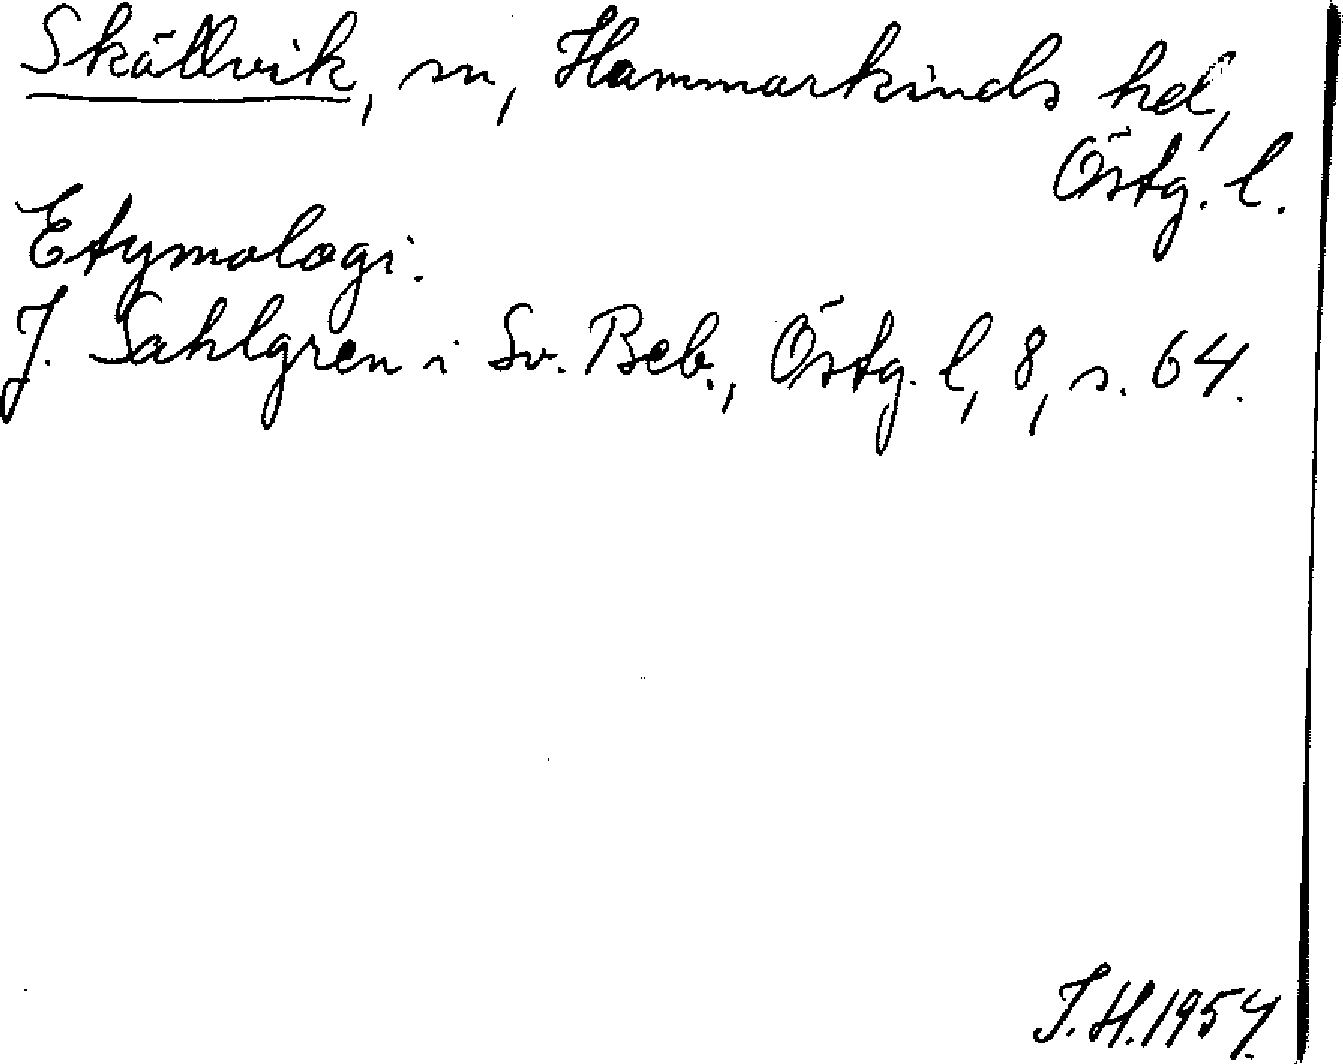 Skällvik, sn, Hammarkinds hd,
Östg. l.
Etymologi.
J. Sahlgren i Sv. Beb., Östg. l, 8, s. 64.
I. H. 1954.